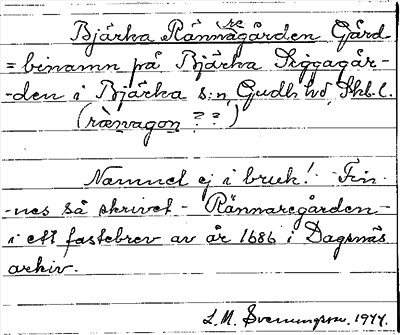 re
Bjärka Rännagården Gård
= binamn på Bjärka Siggagår-
-den i Bjärka s:n, Gudh. hd, Skb.l.
(rænagon ? ?)
Namnet ej i bruk! Fin-
-nes så skrivet - Rännaregården -
i ett fastebrev av år 1686 i Dagsnäs
arkiv.
L. M. Svenungsson. 1944.